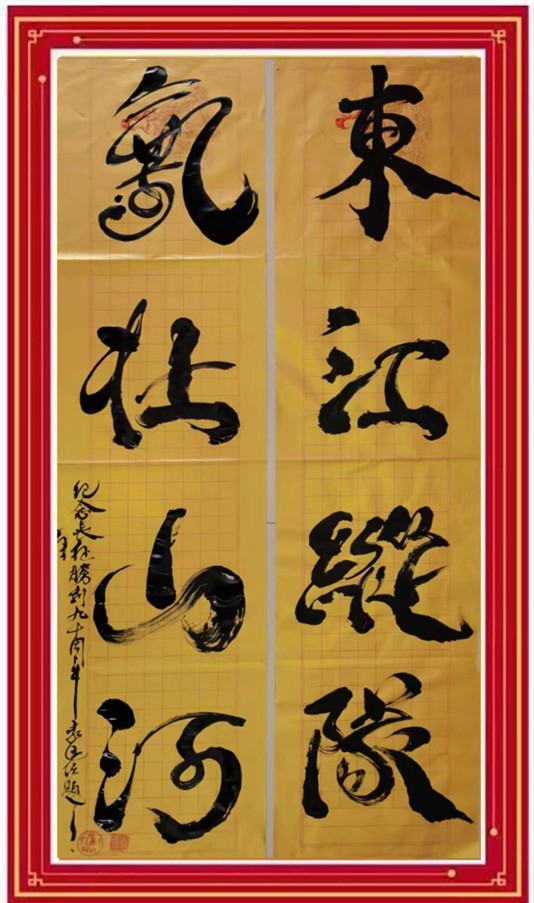 東江縱隊
氣壯山河
纪念長征勝利九十周年